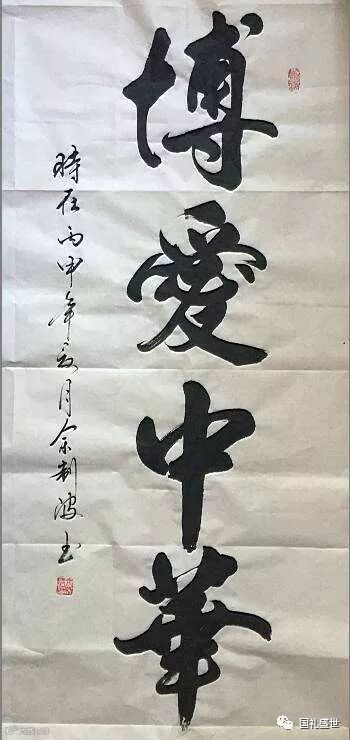 博愛中華
時在丙申年夏月余制波书
国礼盛世